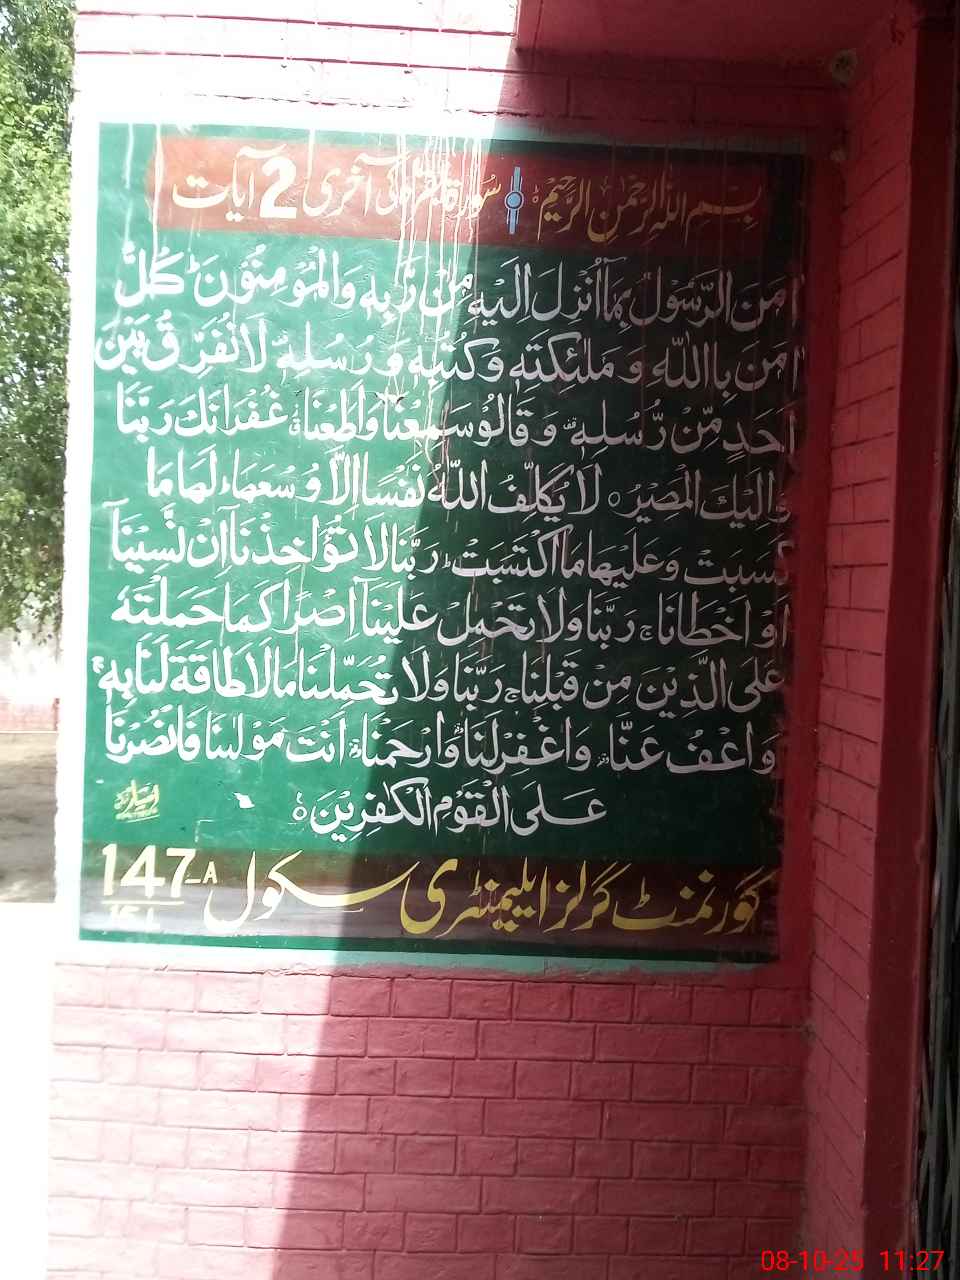 بِسْمِ اللهِ الرَّحْمٰنِ الرَّحِيْمِ سورۃ بقرہ کی آخری 2 آیات
اٰمَنَ الرَّسُوْلُ بِمَاۤ اُنْزِلَ اِلَيْهِ مِنْ رَّبِّهٖ وَالْمُؤْمِنُوْنَ ؕ كُلٌّ
اٰمَنَ بِااللّٰهِ وَ مَلٰٓئِكَتِهٖ وَكُتُبِهٖ وَ رُسُلِهٖ لَا نُفَرِّقُ بَيْنَ
اَحَدٍ مِّنْ رُّسُلِهٖ وَ قَالُوْ سَمِعْنَا وَاَطَعْنَا غُفْرَانَكَ رَبَّنَا
وَاِلَيْكَ الْمَصِيْرُ ○ لَا يُكَلِّفُ اللّٰهُ نَفْسًا اِلَّا وُسْعَهَا لَهَا مَا
كَسَبَتْ وَعَلَيْهَا مَا اكْتَسَبَتْ ؕ رَبَّنَا لَا تُؤَاخِذْنَاۤ اِنْ نَّسِيْنَاۤ
اَوْ اَخْطَانَا ۚ رَبَّنَا وَلَا تَحْمِلْ عَلَيْنَاۤ اِصْرًا كَمَا حَمَلْتَهٗ
عَلَى الَّذِيْنَ مِنْ قَبْلِنَا ۚ رَبَّنَا وَلَا تُحَمِّلْنَا مَا لَا طَاقَةَ لَنَا بِهٖ ۚ
وَاعْفُ عَنَّا وَاغْفِرْلَنَا وَارْحَمْنَا اَنْتَ مَوْلٰىنَا فَانْصُرْنَا
عَلَى الْقَوْمِ الْكٰفِرِيْنَ
گورنمنٹ گرلز ایلیمنٹری سکول 147-A
15-L
08-10-25 11:27